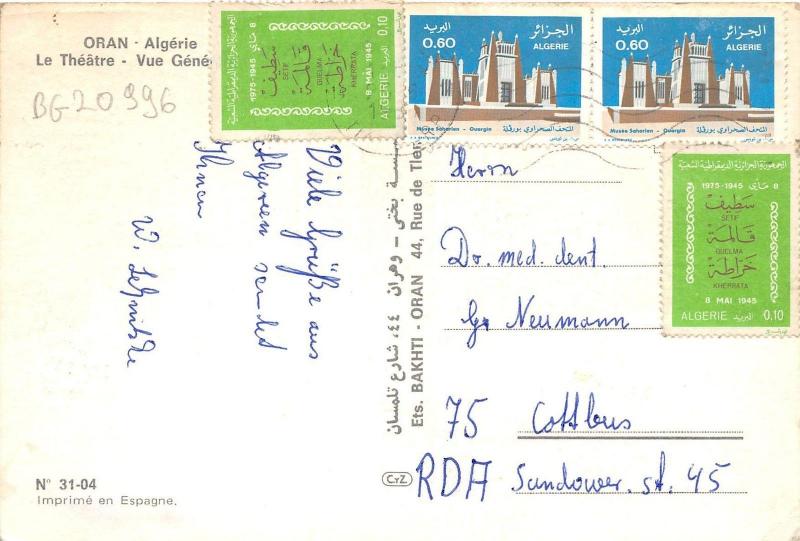 ORAN - Algérie
Le Théâtre - Vue Géné
BG20996
Viele Grüße aus
Algerien sendet
Ihnen
W.
N° 31-04
Imprimé en Espagne.
مؤسسة بختي - وهران ٤٤، شارع تلمسان
Ets. BAKHTI - ORAN 44, Rue de Tlem
CYZ
1975-1945 ماي 8
سطيف
SETIF
قالمة
GUELMA
خراطة
KHERRATA
8 MAI 1945
ALGERIE البريد 0,10
الجمهورية الجزائرية الديمقراطية الشعبية
الجزائر البريد
0.60 ALGERIE
Musée Saharien - Ouargla المتحف الصحراوي بورقلة
الجزائر البريد
0.60 ALGERIE
Musée Saharien - Ouargla المتحف الصحراوي بورقلة
الجمهورية الجزائرية الديمقراطية الشعبية
1975-1945 ماي 8
سطيف
SETIF
قالمة
GUELMA
خراطة
KHERRATA
8 MAI 1945
ALGERIE البريد 0,10
Herrn
Dr. med. dent.
Neumann
75 Cottbus
RDA Sandower. st. 45